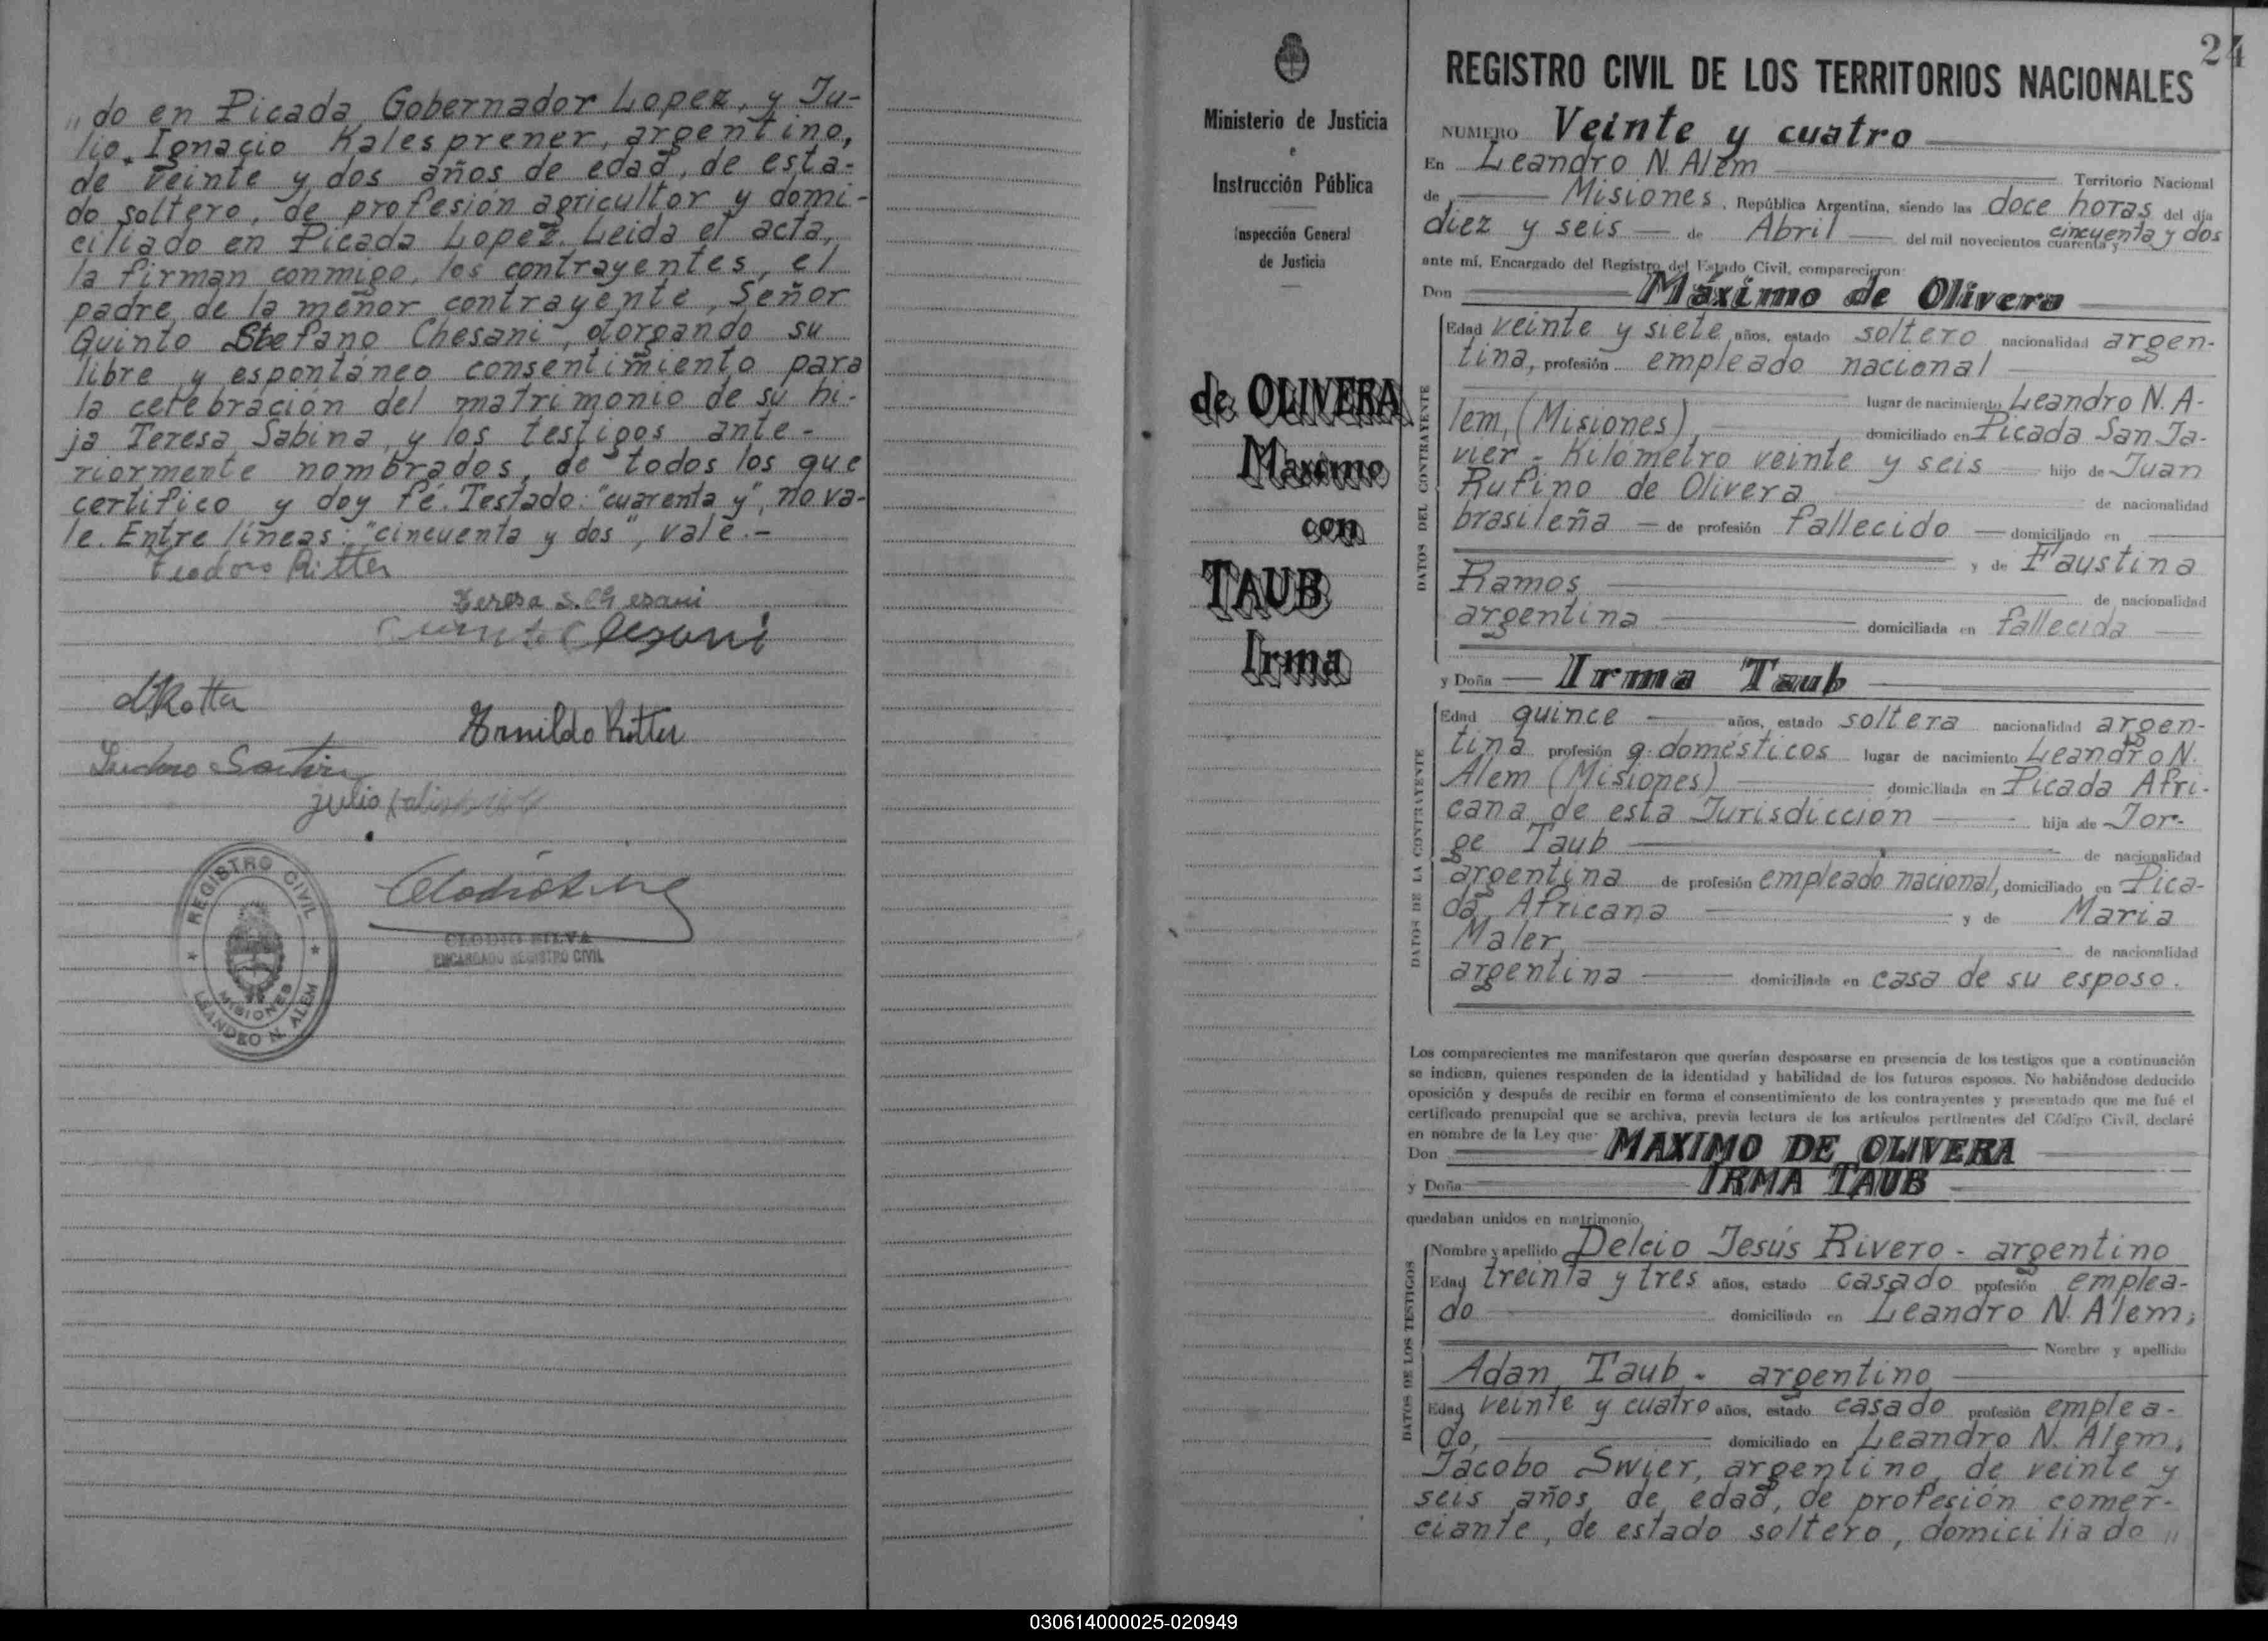 „do en Picada Gobernador Lopez, y Ju-
lio Ignacio Kalesprener, argentino,
de veinte y dos años de edad, de esta-
do soltero, de profesión agricultor y domi-
ciliado en Picada Lopez. Leida el acta,
la firman conmigo, los contrayentes, el
padre de la menor contrayente, Señor
Quinto Stefano Chesani, otorgando su
libre y espontáneo consentimiento para
la celebración del matrimonio de su hi-
ja Teresa Sabina, y los testigos ante-
riormente nombrados, de todos los que
certifico y doy fé. Testado: "cuarenta y", no va-
le. Entre líneas: "cincuenta y dos", vale.-
Teodoro Ritter
Teresa S. Chesani
Chesani
Arnildo Ritter
Julio
REGISTRO CIVIL
MISIONES
LEANDRO N. ALEM
CLODIO SILVA
ENCARGADO REGISTRO CIVIL
Ministerio de Justicia
e
Instrucción Pública
Inspección General
de Justicia
de OLIVERA
Máximo
con
TAUB
Irma
24
REGISTRO CIVIL DE LOS TERRITORIOS NACIONALES
NUMERO Veinte y cuatro
En Leandro N. Alem Territorio Nacional
de Misiones, República Argentina, siendo las doce horas del día
diez y seis de Abril del mil novecientos cuarenta y cincuenta y dos
ante mí, Encargado del Registro del Estado Civil, comparecieron:
Don Máximo de Olivera
DATOS DEL CONTRAYENTE
Edad veinte y siete años, estado soltero nacionalidad argen-
tina, profesión empleado nacional
lugar de nacimiento Leandro N. A-
lem, (Misiones) domiciliado en Picada San Ja-
vier - Kilómetro veinte y seis hijo de Juan
Rufino de Olivera de nacionalidad
brasileña - de profesión fallecido domiciliado en
y de Faustina
Ramos de nacionalidad
argentina domiciliada en fallecida
y Doña Irma Taub
DATOS DE LA CONTRAYENTE
Edad quince años, estado soltera nacionalidad argen-
tina profesión q. domésticos lugar de nacimiento Leandro N.
Alem (Misiones) domiciliada en Picada Afri-
cana de esta Jurisdicción hija de Jor-
ge Taub de nacionalidad
argentina de profesión empleado nacional, domiciliado en Pica-
da Africana y de Maria
Maler, de nacionalidad
argentina domiciliada en casa de su esposo.
Los comparecientes me manifestaron que querían desposarse en presencia de los testigos que a continuación
se indican, quienes responden de la identidad y habilidad de los futuros esposos. No habiéndose deducido
oposición y después de recibir en forma el consentimiento de los contrayentes y presentado que me fué el
certificado prenupcial que se archiva, previa lectura de los artículos pertinentes del Código Civil, declaré
en nombre de la Ley que:
Don MAXIMO DE OLIVERA
y Doña IRMA TAUB
quedaban unidos en matrimonio.
DATOS DE LOS TESTIGOS
Nombre y apellido Delcio Jesús Rivero - argentino
Edad treinta y tres años, estado casado profesión emplea-
do domiciliado en Leandro N. Alem;
Nombre y apellido
Adan Taub - argentino
Edad veinte y cuatro años, estado casado profesión emplea-
do, domiciliado en Leandro N. Alem,
Jacobo Swier, argentino, de veinte y
seis años de edad, de profesión comer-
ciante, de estado soltero, domiciliado „
030614000025-020949